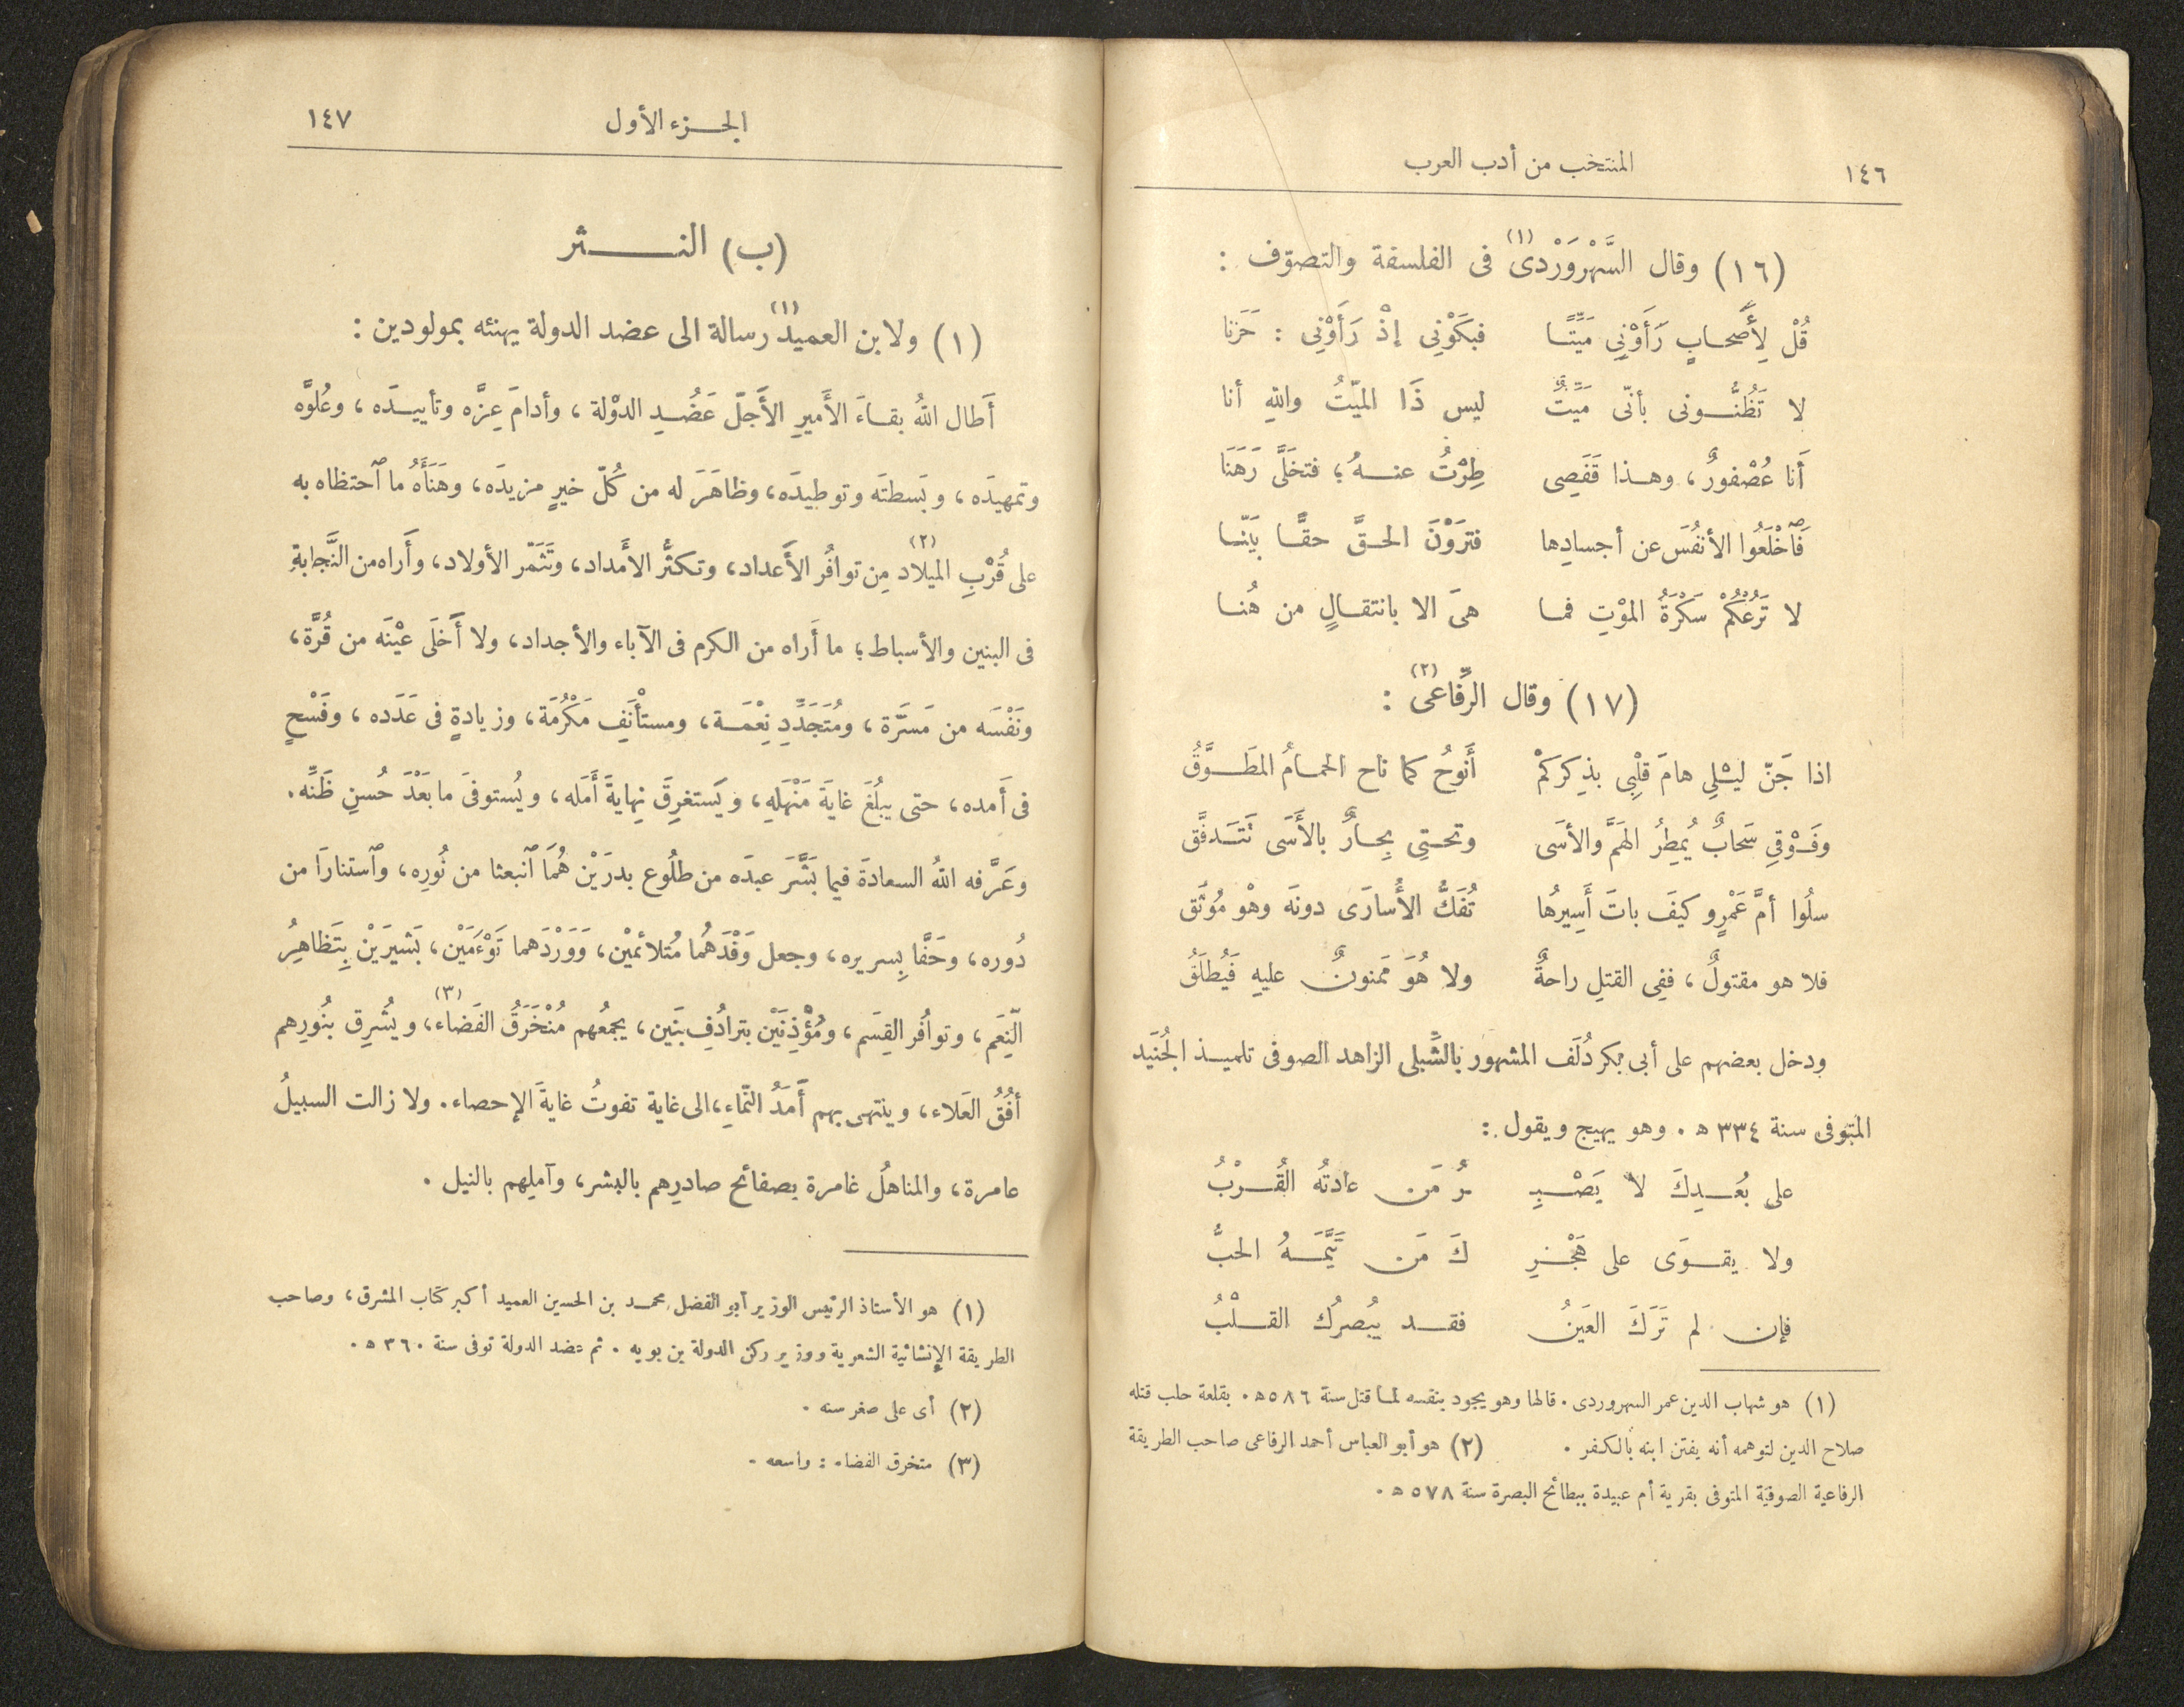 ١٤٦
المنتخب من أدب العرب
(١٦) وقال السَّهْرَوَرْدى (١) فى الفلسفة والتصوّف :
قُلْ لِأَصحابٍ رَأَوْنِى مَيِّتًا فبكَوْنِى إذْ رَأَوْنِى : حَزَنا
لا تَظُنُّونى بأنّى مَيِّتٌ ليس ذَا الميّتُ واللهِ أنا
أَنا عُصْفورٌ، وهذا قَفَصِى طِرْتُ عنهُ؛ فتخَلَّى رَهَنَا
فَٱخْلَعُوا الأنفُسَ عن أجسادِها فترَوْنَ الحقَّ حقًّا بَيّنا
لا تَرُعْكُمْ سَكْرَةُ الموْتِ فما هىَ الا بانتقالٍ من هُنا
(١٧) وقال الرِّفاعى (٢) :
اذا جَنّ ليْلِى هامَ قلْبِى بذِكركمْ أَنوحُ كما ناح الحمامُ المطَوَّقُ
وفَوْقِى سَحابٌ يُمطِرُ الهَمَّ والأسَى وتحتِى بِحارٌ بالأَسَى تَتَدفَّق
سلُوا أمَّ عَمْرٍو كيفَ باتَ أَسِيرُها تُفَكُّ الأُسارَى دونَه وهْو مُوثَق
فلا هو مقتولٌ، ففِى القتلِ راحةٌ ولا هُوَ مَمنونٌ عليهِ فَيُطلَقُ
ودخل بعضهم على أبى بكر دُلَف المشهور بالشِّبلى الزاهد الصوفى تلميذ الجُنَيد
المتوفى سنة ٣٣٤ ه . وهو يهيج ويقول :
على بُعدِكَ لا يَصْبِرُ مَن عادتُه القُرْبُ
ولا يقوَى على هَجْرِكَ مَن تَيَّمَهُ الحبُّ
فإن لم تَرَكَ العَينُ فقد يُبصرُك القلْبُ
(١) هو شهاب الدين عمر السهروردى . قالها وهو يجود بنفسه لما قتل سنة ٥٨٦ ه . بقلعة حلب قتله
صلاح الدين لتوهمه أنه يفتن ابنه بالكفر . (٢) هو أبو العباس أحمد الرفاعى صاحب الطريقة
الرفاعية الصوفية المتوفى بقرية أم عبيدة ببطائح البصرة سنة ٥٧٨ ه .
الجزء الأول
١٤٧
(ب) النثر
(١) ولابن العميد (١) رسالة الى عضد الدولة يهنئه بمولودين :
أَطال اللهُ بقاءَ الأَميرِ الأَجلّ عَضُدِ الدوْلة، وأدامَ عِزَّه وتأييدَه، وعُلوَّه
وتمهيدَه، وبَسطتَه وتوطيدَه، وظاهَرَ له من كُلّ خيرٍ مزيدَه، وهَنَأَهُ ما ٱحتظاه به
على قُرْبِ الميلاد (٢) مِن توافُر الأَعداد، وتكثُّر الأَمداد، وتَثَمّر الأولاد، وأَراه من النَّجابةِ
فى البنين والأسباط؛ ما أَراه من الكرم فى الآباء والأجداد، ولا أَخلَى عيْنَه من قُرَّة،
ونَفْسَه من مَسَرَّة، ومُتَجَدِّدِ نِعْمَة، ومستأْنَفِ مَكْرُمَة، وزيادةٍ فى عَدَده، وفَسْحٍ
فى أَمده، حتى يبلُغَ غايةَ مَنْهَلِه، ويَستغرِقَ نِهايةَ أَمَله، ويُستوفىَ ما بَعْدَ حُسنِ ظَنِّه.
وعَرَّفه اللهُ السعادةَ فيما بَشَّرَ عبدَه من طلُوع بدرَيْن هُمَا ٱنبعثا من نُورِه، وٱستنارَا من
دُوره، وحَفَّا بِسريره، وجعل وَفْدَهُما مُتلائميْن، وَوَرْدَهما تَوْءَمَيْن، بَشيرَيْن بِتَظاهِرُ
النِّعَم، وتوافُر القِسَم، ومُؤْذِنَيْن بترادُفِ بَنين، يجمعُهم مُنْخَرَقُ الفَضاء (٣)، ويُشرِق بنُورِهم
أفُقُ العَلاء، وينتهى بهم أَمَدُ النّماءِ، الى غاية تفوتُ غايةَ الإحصاء. ولا زالت السبيلُ
عامرة، والمناهلُ غامرة بصفائح صادرِهم بالبشر، وآمِلِهم بالنيل .
(١) هو الأستاذ الرئيس الوزير أبو الفضل محمد بن الحسين العميد أكبر كتّاب المشرق، وصاحب
الطريقة الإنشائية الشعرية ووزير ركن الدولة بن بويه . ثم عضد الدولة توفى سنة ٣٦٠ ه .
(٢) أى على صغر سنه .
(٣) متخرق الفضاء : واسعه .